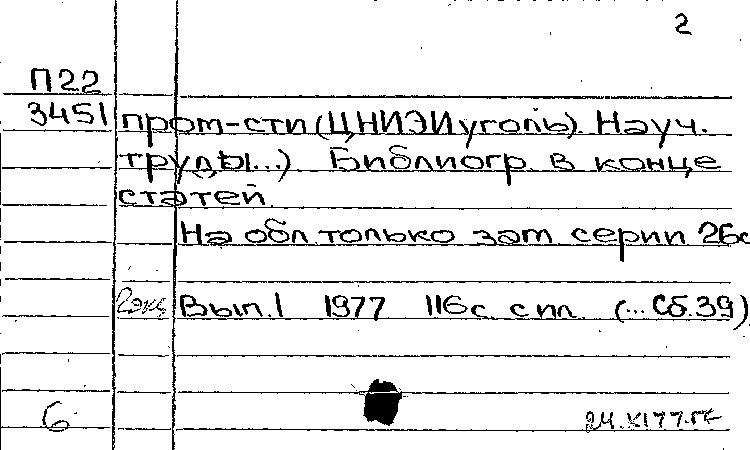 2
П22
3451 пром-сти (ЦНИЭИуголь). Науч.
труды...) Библиогр. в конце
статей.
На обл. только заг. серии. 26с
2экз Вып. 1 1977 116с. с ил. (... Сб. 39)
6